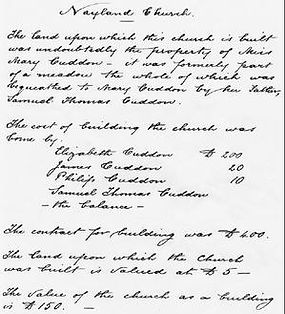 Nayland Church.
The land upon which this church is built
was undoubtedly the property of Miss
Mary Cuddon - it was formerly part
of a meadow the whole of which was
bequeathed to Mary Cuddon by her father
Samuel Thomas Cuddon.
The cost of building the church was
borne by
Elizabeth Cuddon £ 200
James Cuddon 20
Philip Cuddon 10
Samuel Thomas Cuddon
- the balance -
The contract for building was £400.
The land upon which the Church
was built is valued at £5 -
The value of the church as a building
is £150. -